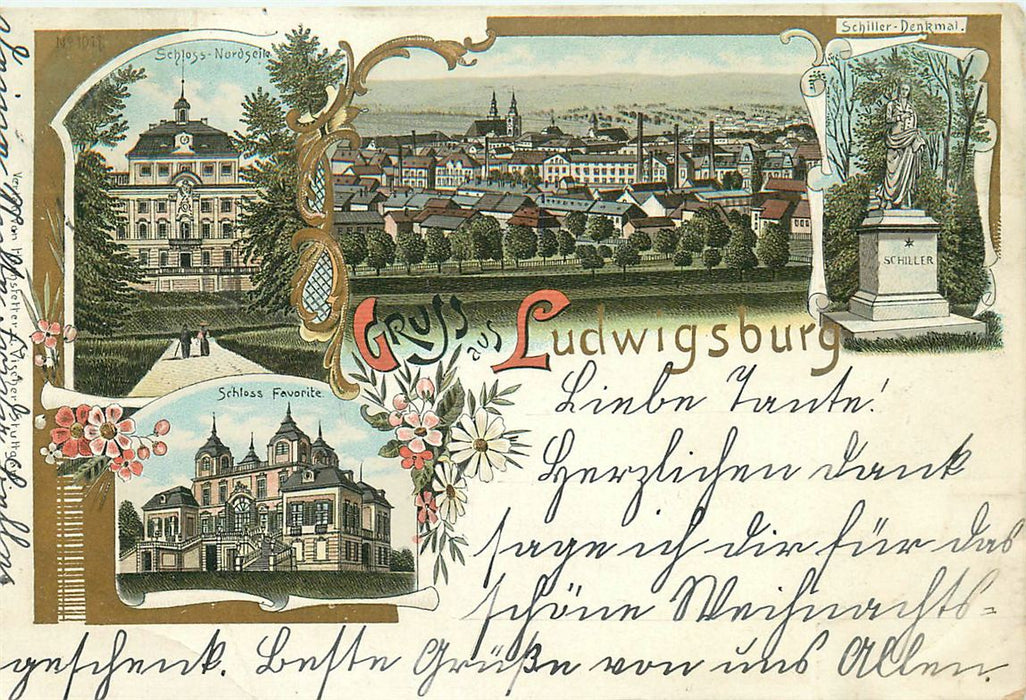 No 1017
Schloss-Nordseite
Schiller-Denkmal.
SCHILLER
Gruss aus Ludwigsburg
Schloss Favorite.
Liebe Tante!
Herzlichen Dank
sage ich dir für das
schöne Weihnachts-
geschenk. Beste Grüße von uns Allen.